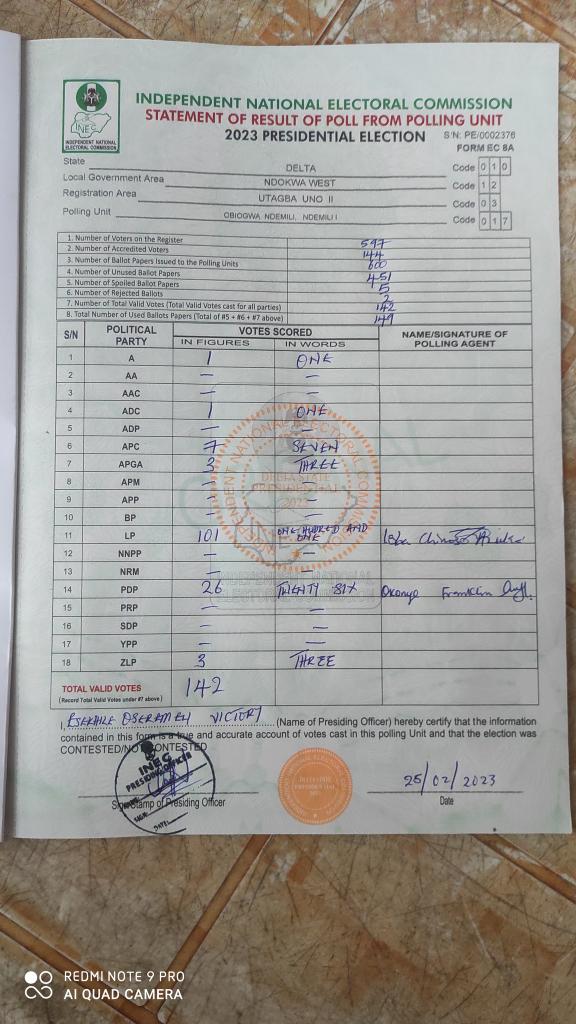 INEC
INDEPENDENT NATIONAL
ELECTORAL COMMISSION
INDEPENDENT NATIONAL ELECTORAL COMMISSION
STATEMENT OF RESULT OF POLL FROM POLLING UNIT
2023 PRESIDENTIAL ELECTION S/N: PE/0002376
FORM EC 8A
State DELTA Code 0 1 0
Local Government Area NDOKWA WEST Code 1 2
Registration Area UTAGBA UNO II Code 0 3
Polling Unit OBIOGWA NDEMILI, NDEMILI I Code 0 1 7
1. Number of Voters on the Register 597
2. Number of Accredited Voters 144
3. Number of Ballot Papers Issued to the Polling Units 600
4. Number of Unused Ballot Papers 451
5. Number of Spoiled Ballot Papers 5
6. Number of Rejected Ballots 2
7. Number of Total Valid Votes (Total Valid Votes cast for all parties) 142
8. Total Number of Used Ballots Papers (Total of #5 + #6 + #7 above) 149
S/N POLITICAL PARTY VOTES SCORED NAME/SIGNATURE OF POLLING AGENT
IN FIGURES IN WORDS
1 A 1 ONE
2 AA — —
3 AAC — —
4 ADC 1 ONE
5 ADP — —
6 APC 7 SEVEN
7 APGA 3 THREE
8 APM — —
9 APP — —
10 BP — —
11 LP 101 ONE HUNDRED AND ONE
12 NNPP — —
13 NRM — —
14 PDP 26 TWENTY SIX Okonye Franklin
15 PRP — —
16 SDP — —
17 YPP — —
18 ZLP 3 THREE
TOTAL VALID VOTES 142
(Record Total Valid Votes under #7 above)
I, VICTORY (Name of Presiding Officer) hereby certify that the information
contained in this form is a true and accurate account of votes cast in this polling Unit and that the election was
CONTESTED/NOT CONTESTED
INEC
PRESIDING OFFICER
SIGN:
DATE:
DELTA STATE
PRESIDENTIAL
2023
25/02/2023
Sign/Stamp of Presiding Officer Date
REDMI NOTE 9 PRO
AI QUAD CAMERA